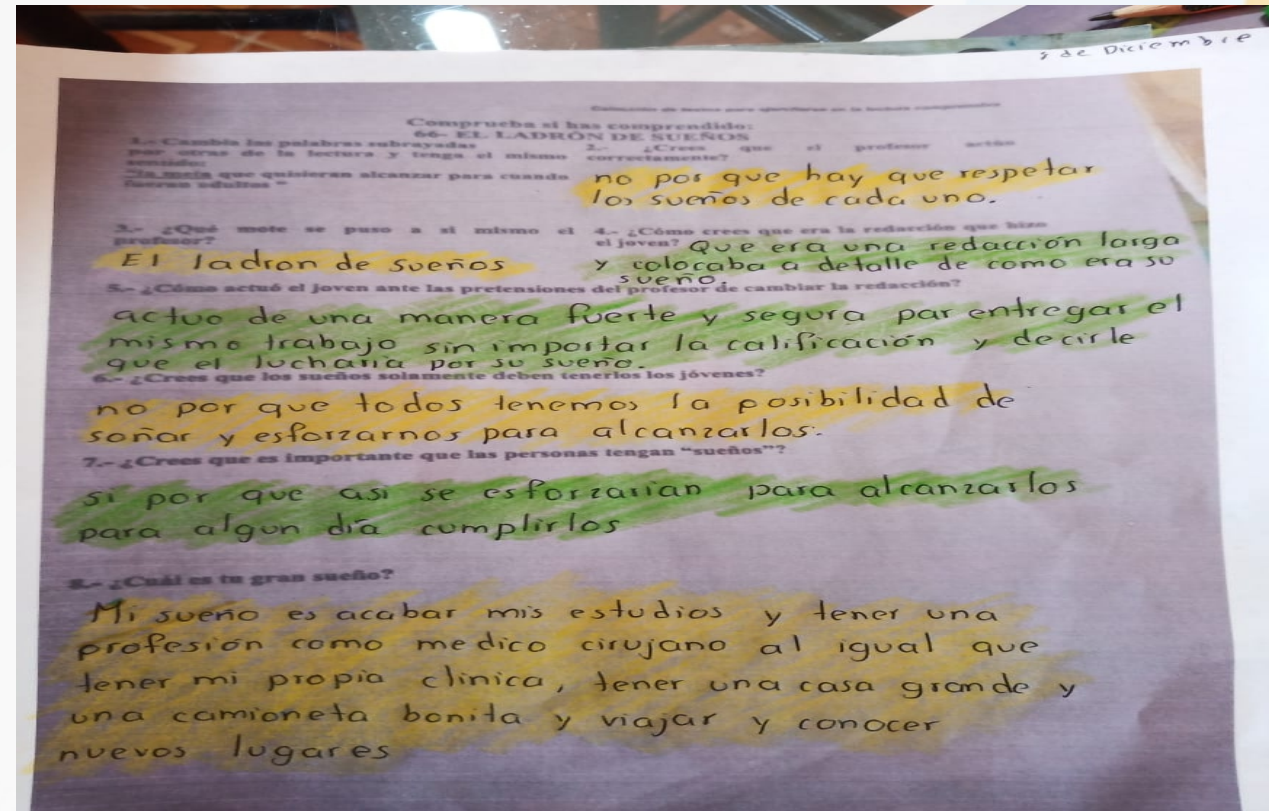 8 de Diciembre
Colección de textos para ejercitarse en la lectura comprensiva
Comprueba si has comprendido:
66- EL LADRÓN DE SUEÑOS
1.- Cambia las palabras subrayadas
por otras de la lectura y tenga el mismo
sentido:
"la meta que quisieran alcanzar para cuando
fueran adultos "
2.- ¿Crees que el profesor actúo
correctamente?
no por que hay que respetar
los sueños de cada uno.
3.- ¿Qué mote se puso a sí mismo el
profesor?
El ladron de sueños
4.- ¿Cómo crees que era la redacción que hizo
el joven? Que era una redacción larga
y colocaba a detalle de como era su
sueño.
5.- ¿Cómo actuó el joven ante las pretensiones del profesor de cambiar la redacción?
actuo de una manera fuerte y segura par entregar el
mismo trabajo sin importar la calificación y decirle
que el lucharia por su sueño.
6.- ¿Crees que los sueños solamente deben tenerlos los jóvenes?
no por que todos tenemos la posibilidad de
soñar y esforzarnos para alcanzarlos.
7.- ¿Crees que es importante que las personas tengan "sueños"?
si por que asi se esforzarian para alcanzarlos
para algun día cumplirlos
8.- ¿Cuál es tu gran sueño?
Mi sueño es acabar mis estudios y tener una
profesión como medico cirujano al igual que
tener mi propia clinica, tener una casa grande y
una camioneta bonita y viajar y conocer
nuevos lugares